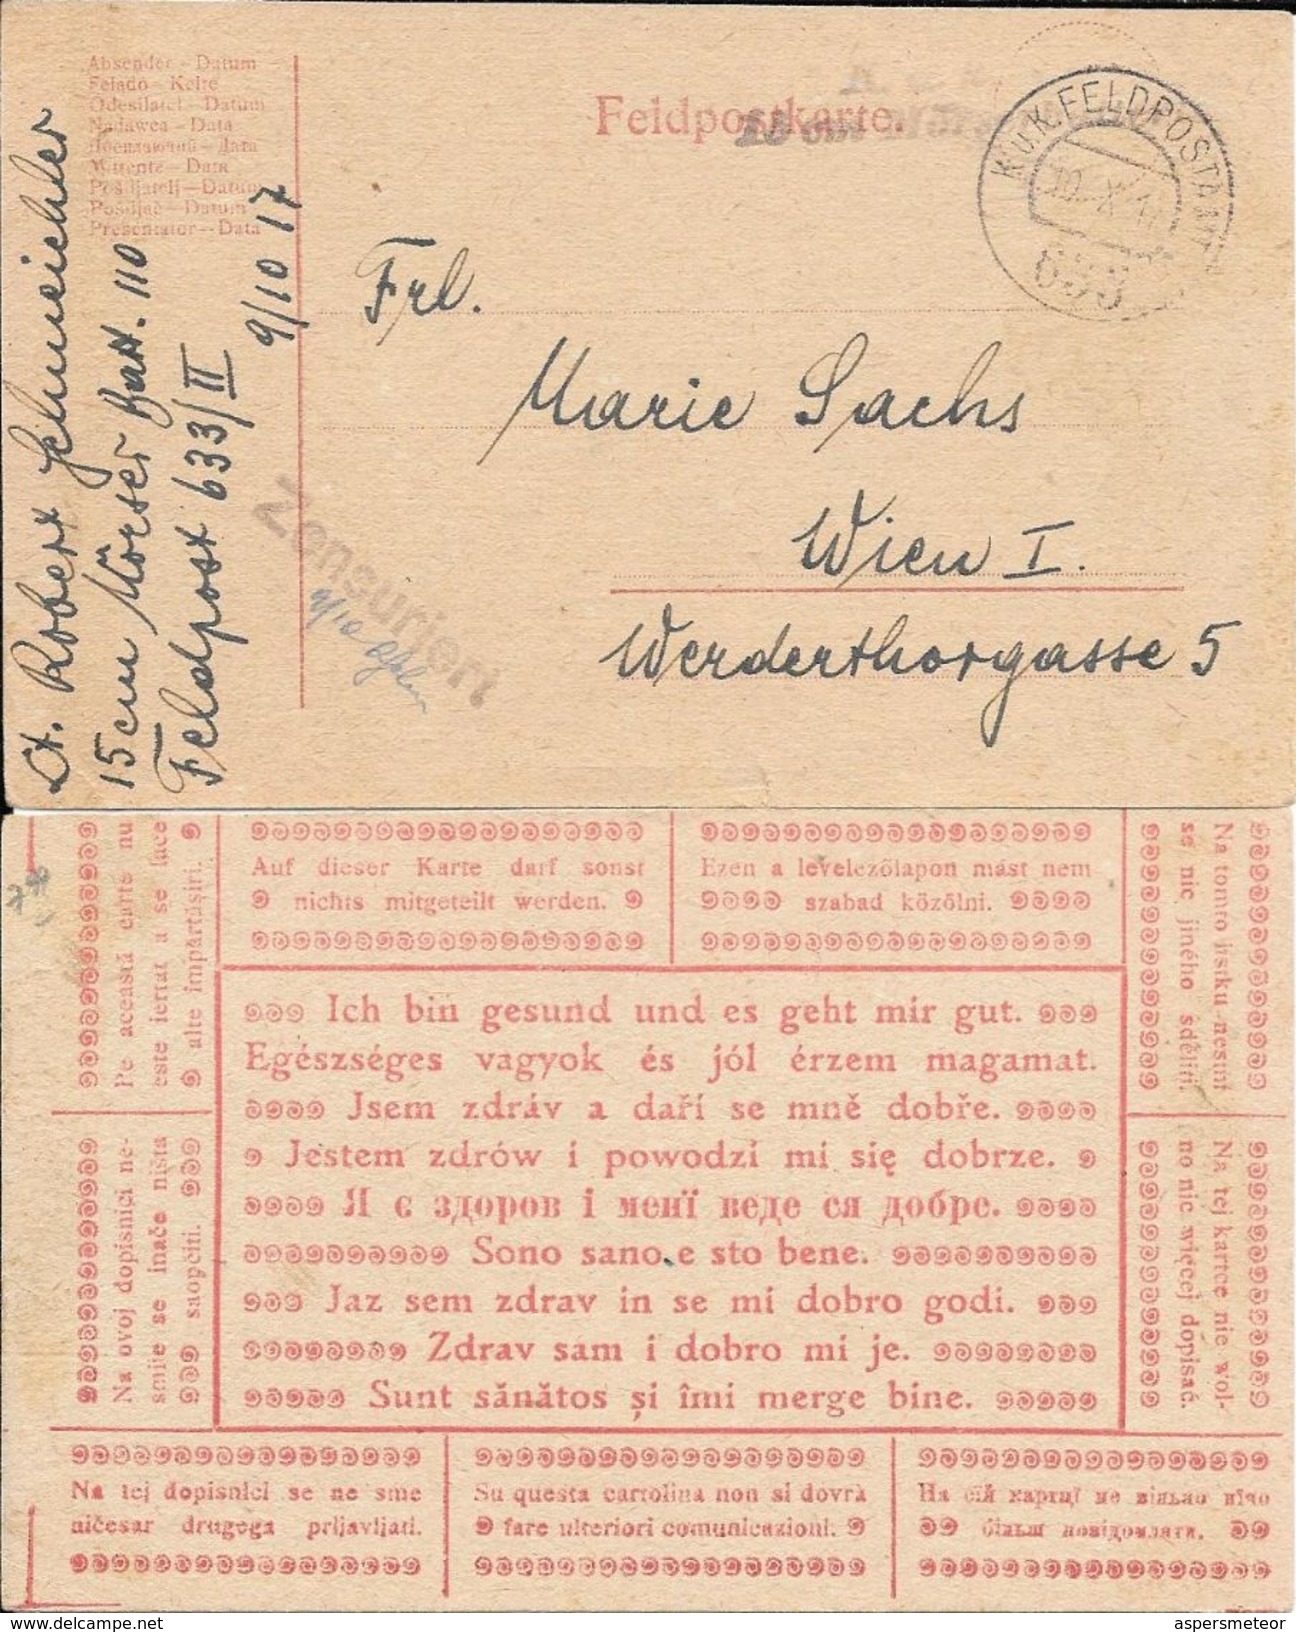 Absender - Datum
Felado - Kelte
Odesílatel - Datum
Nadawca - Data
Посилаючий - Дата
Mittente - Data
Pošiljatelj - Datum
Pošiljač - Datum
Presentator - Data
Feldpostkarte.
15 cm
K.u.K. FELDPOSTAMT
10. X. 17
633
Lt. Robert
15 cm Mörser Batt. 110
Feldpost 633/II
9/10 17
Frl.
Marie Sachs
Wien I.
Werderthorgasse 5
Zensuriert
9/10
Auf dieser Karte darf sonst
nichts mitgeteilt werden.
Ezen a levelezőlapon mást nem
szabad közölni.
Na tomto lístku nesmí
se nic jiného sděliti.
Na tej kartce nie wol-
no nic więcej dopisać.
Pe această carte nu
este iertat a se face
alte împărtăşiri.
Na ovoj dopisnici ne-
smije se inače ništa
saopćiti.
Ich bin gesund und es geht mir gut.
Egészséges vagyok és jól érzem magamat.
Jsem zdráv a daří se mně dobře.
Jestem zdrów i powodzi mi się dobrze.
Я є здоров і менї веде ся добре.
Sono sano e sto bene.
Jaz sem zdrav in se mi dobro godi.
Zdrav sam i dobro mi je.
Sunt sănătos şi îmi merge bine.
Na tej dopisnici se ne sme
ničesar drugega prijavljati.
Su questa cartolina non si dovrà
fare ulteriori comunicazioni.
На сїй картцї не вільно нїчо
більш повідомляти.
aspersmeteor